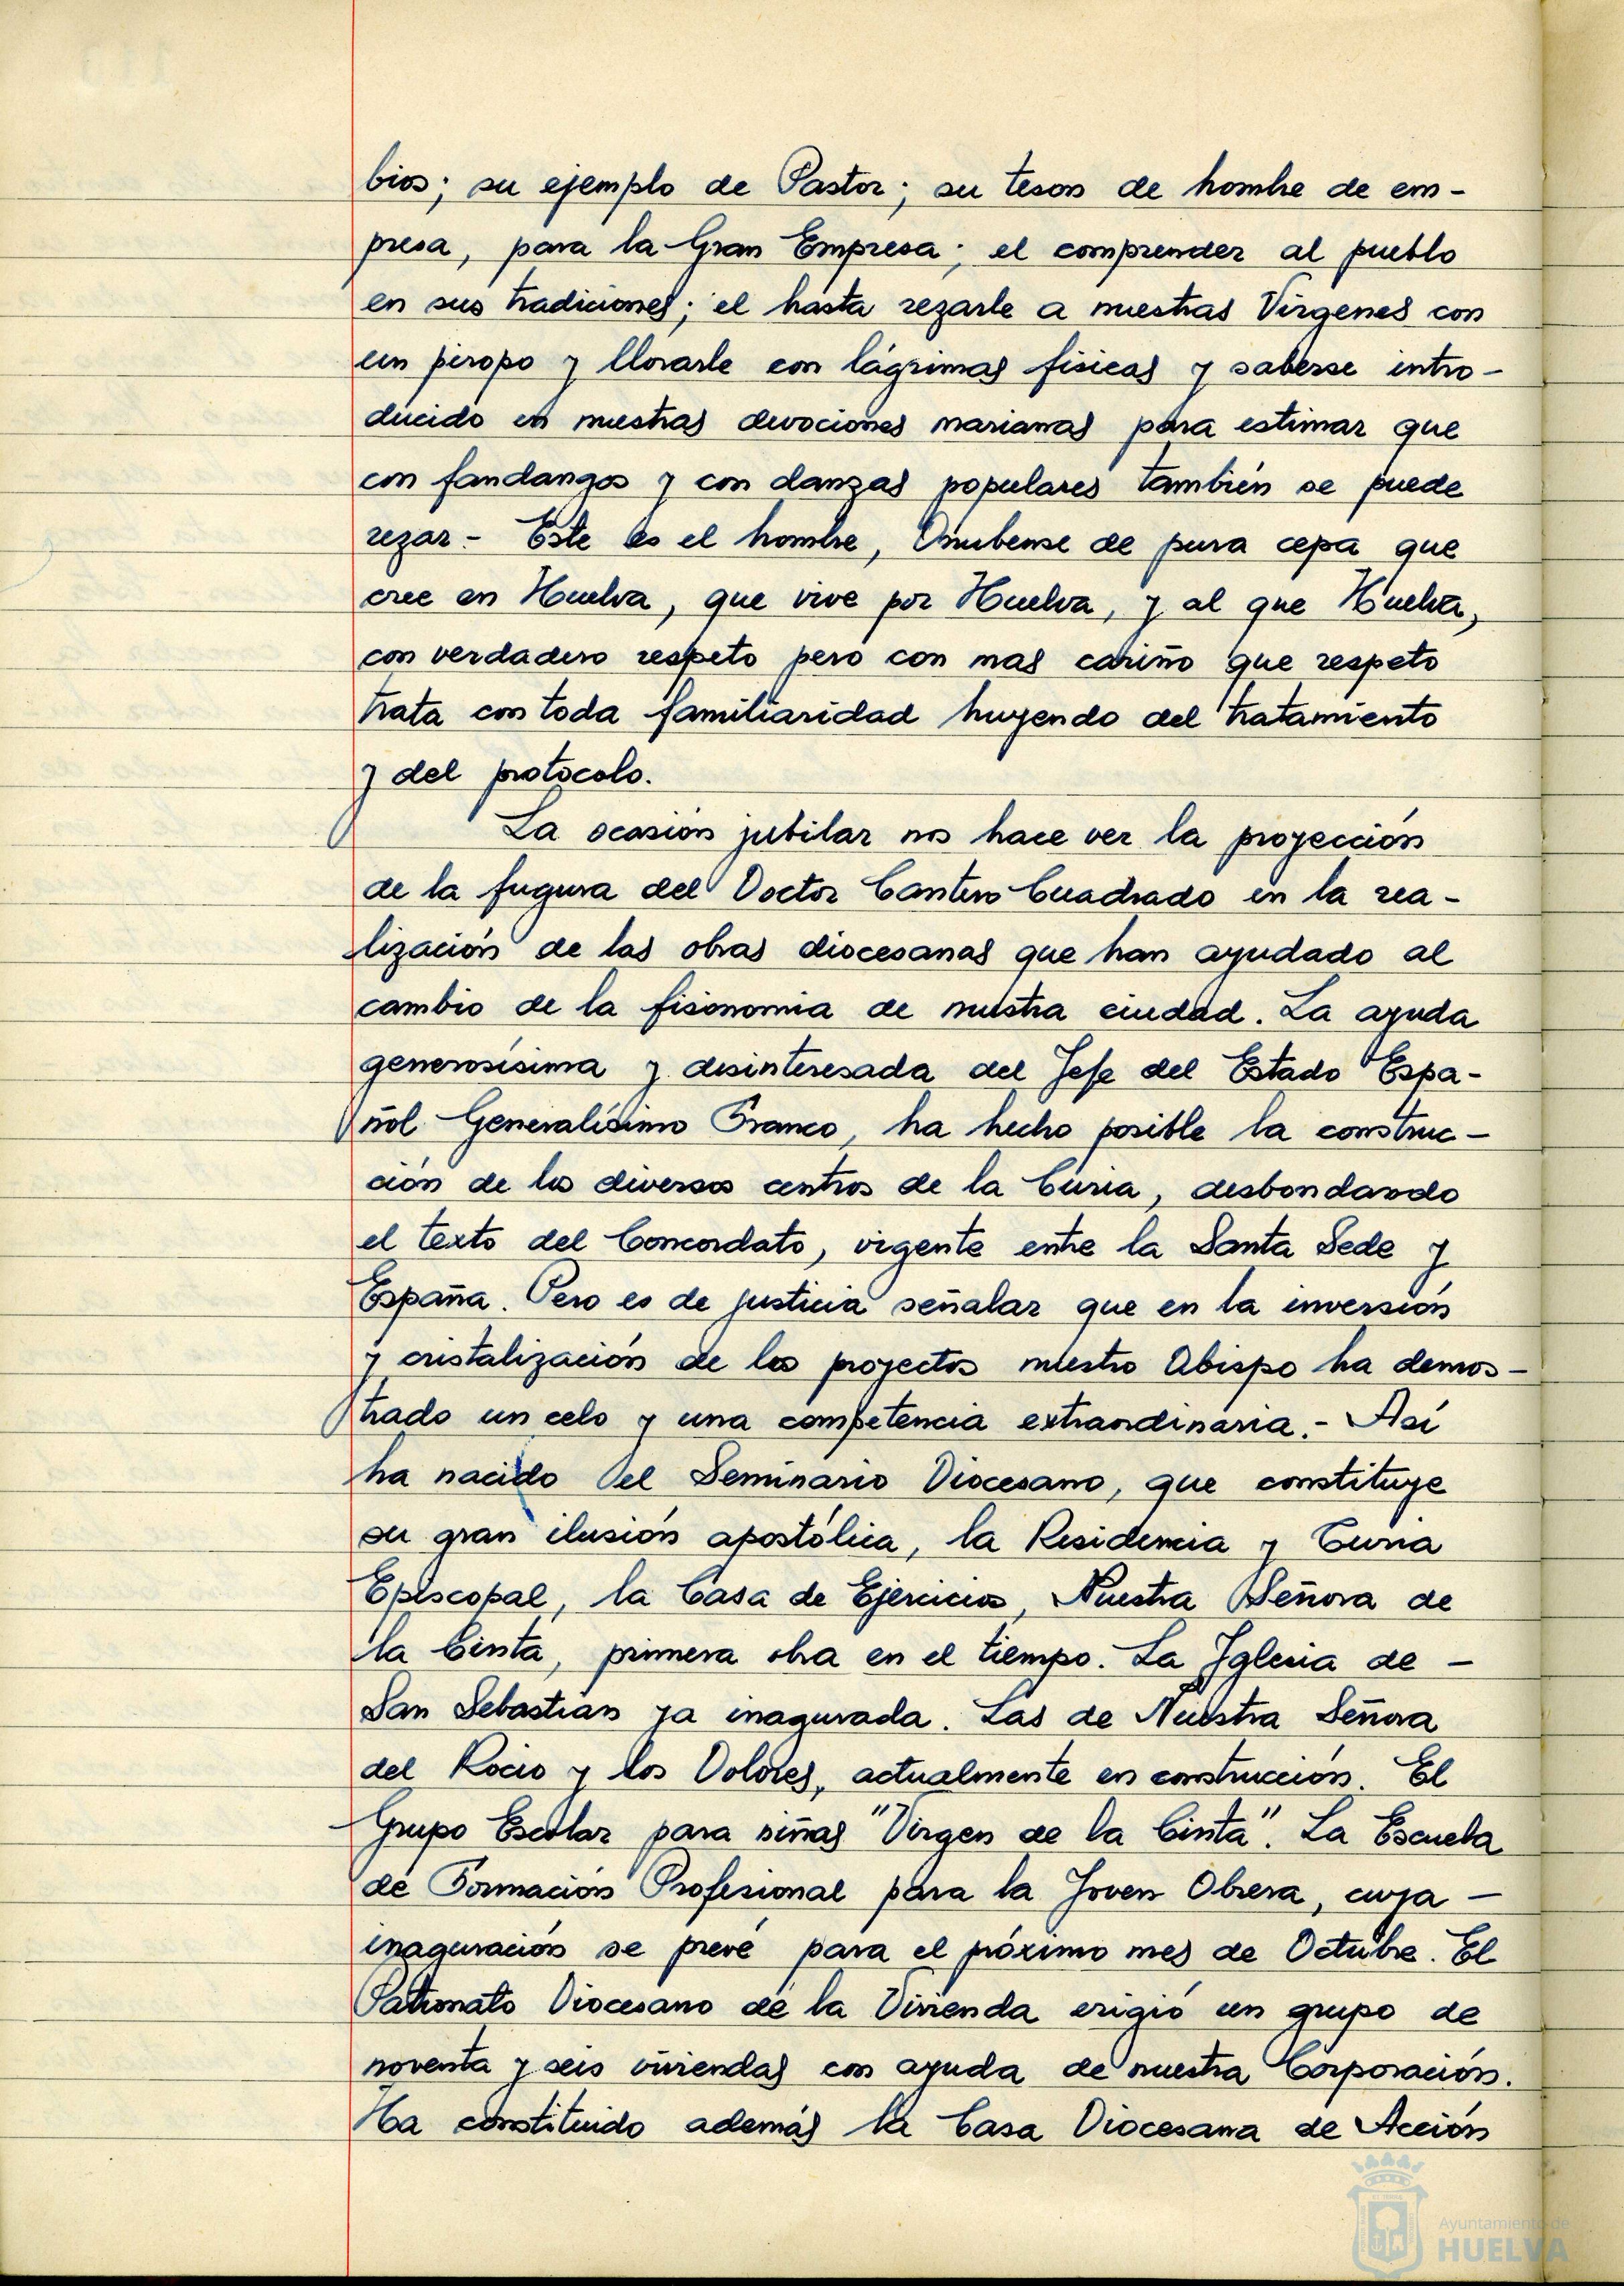 bios; su ejemplo de Pastor; su teson de hombre de em-
presa, para la Gran Empresa; el comprender al pueblo
en sus tradiciones; el hasta rezarle a nuestras Virgenes con
un piropo y llorarle con lágrimas fisicas y saberse intro-
ducido en nuestras devociones marianas para estimar que
con fandangos y con danzas populares también se puede
rezar - Este es el hombre, Onubense de pura cepa que
cree en Huelva, que vive por Huelva, y al que Huelva,
con verdadero respeto pero con mas cariño que respeto
trata con toda familiaridad huyendo del tratamiento
y del protocolo.
La ocasión jubilar nos hace ver la proyección
de la fugura del Doctor Cantero Cuadrado en la rea-
lización de las obras diocesanas que han ayudado al
cambio de la fisonomia de nuestra ciudad. La ayuda
generosisima y desinteresada del Jefe del Estado Espa-
ñol Generalísimo Franco, ha hecho posible la construc-
ción de los diversos centros de la Curia, desbordando
el texto del Concordato, vigente entre la Santa Sede y
España. Pero es de justicia señalar que en la inversión
y cristalización de los proyectos nuestro Obispo ha demos-
trado un celo y una competencia extraordinaria.- Así
ha nacido el Seminario Diocesano, que constituye
su gran ilusión apostólica, la Residencia y Curia
Episcopal, la Casa de Ejercicios, Nuestra Señora de
la Cinta, primera obra en el tiempo. La Iglesia de -
San Sebastian ya inagurada. Las de Nuestra Señora
del Rocio y los Dolores, actualmente en construcción. El
Grupo Escolar para niñas "Virgen de la Cinta". La Escuela
de Formación Profesional para la Joven Obrera, cuya -
inaguración se prevé para el próximo mes de Octubre. El
Patronato Diocesano de la Vivienda erigió un grupo de
noventa y seis viviendas con ayuda de nuestra Corporación.
Ha constituido además la Casa Diocesana de Acción
Ayuntamiento de
HUELVA